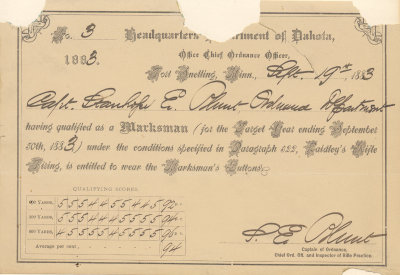 No. 3 Headquarters Department of Dakota,
1883. Office Chief Ordnance Officer,
Fort Snelling, Minn., Sept. 19th, 1883
Capt. Stanhope E. Blunt Ordnance Department
having qualified as a Marksman (for the Target Year ending September
30th, 1883) under the conditions specified in Paragraph 622, Laidley's Rifle
Firing, is entitled to wear the Marksman's Buttons.
QUALIFYING SCORES.
YARDS, 5554455445 92
YARDS, 5555
YARDS, 4555
Average per cent., 94
S. E. Blunt
Captain of Ordnance,
Chief Ord. Off. and Inspector of Rifle Practice.